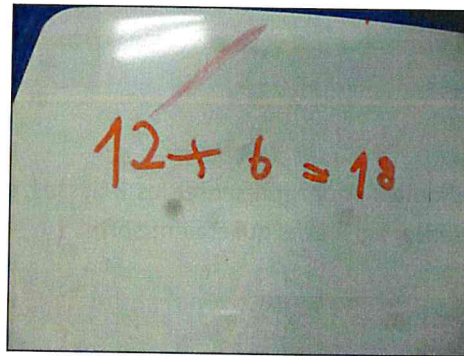 12 + 6 = 18